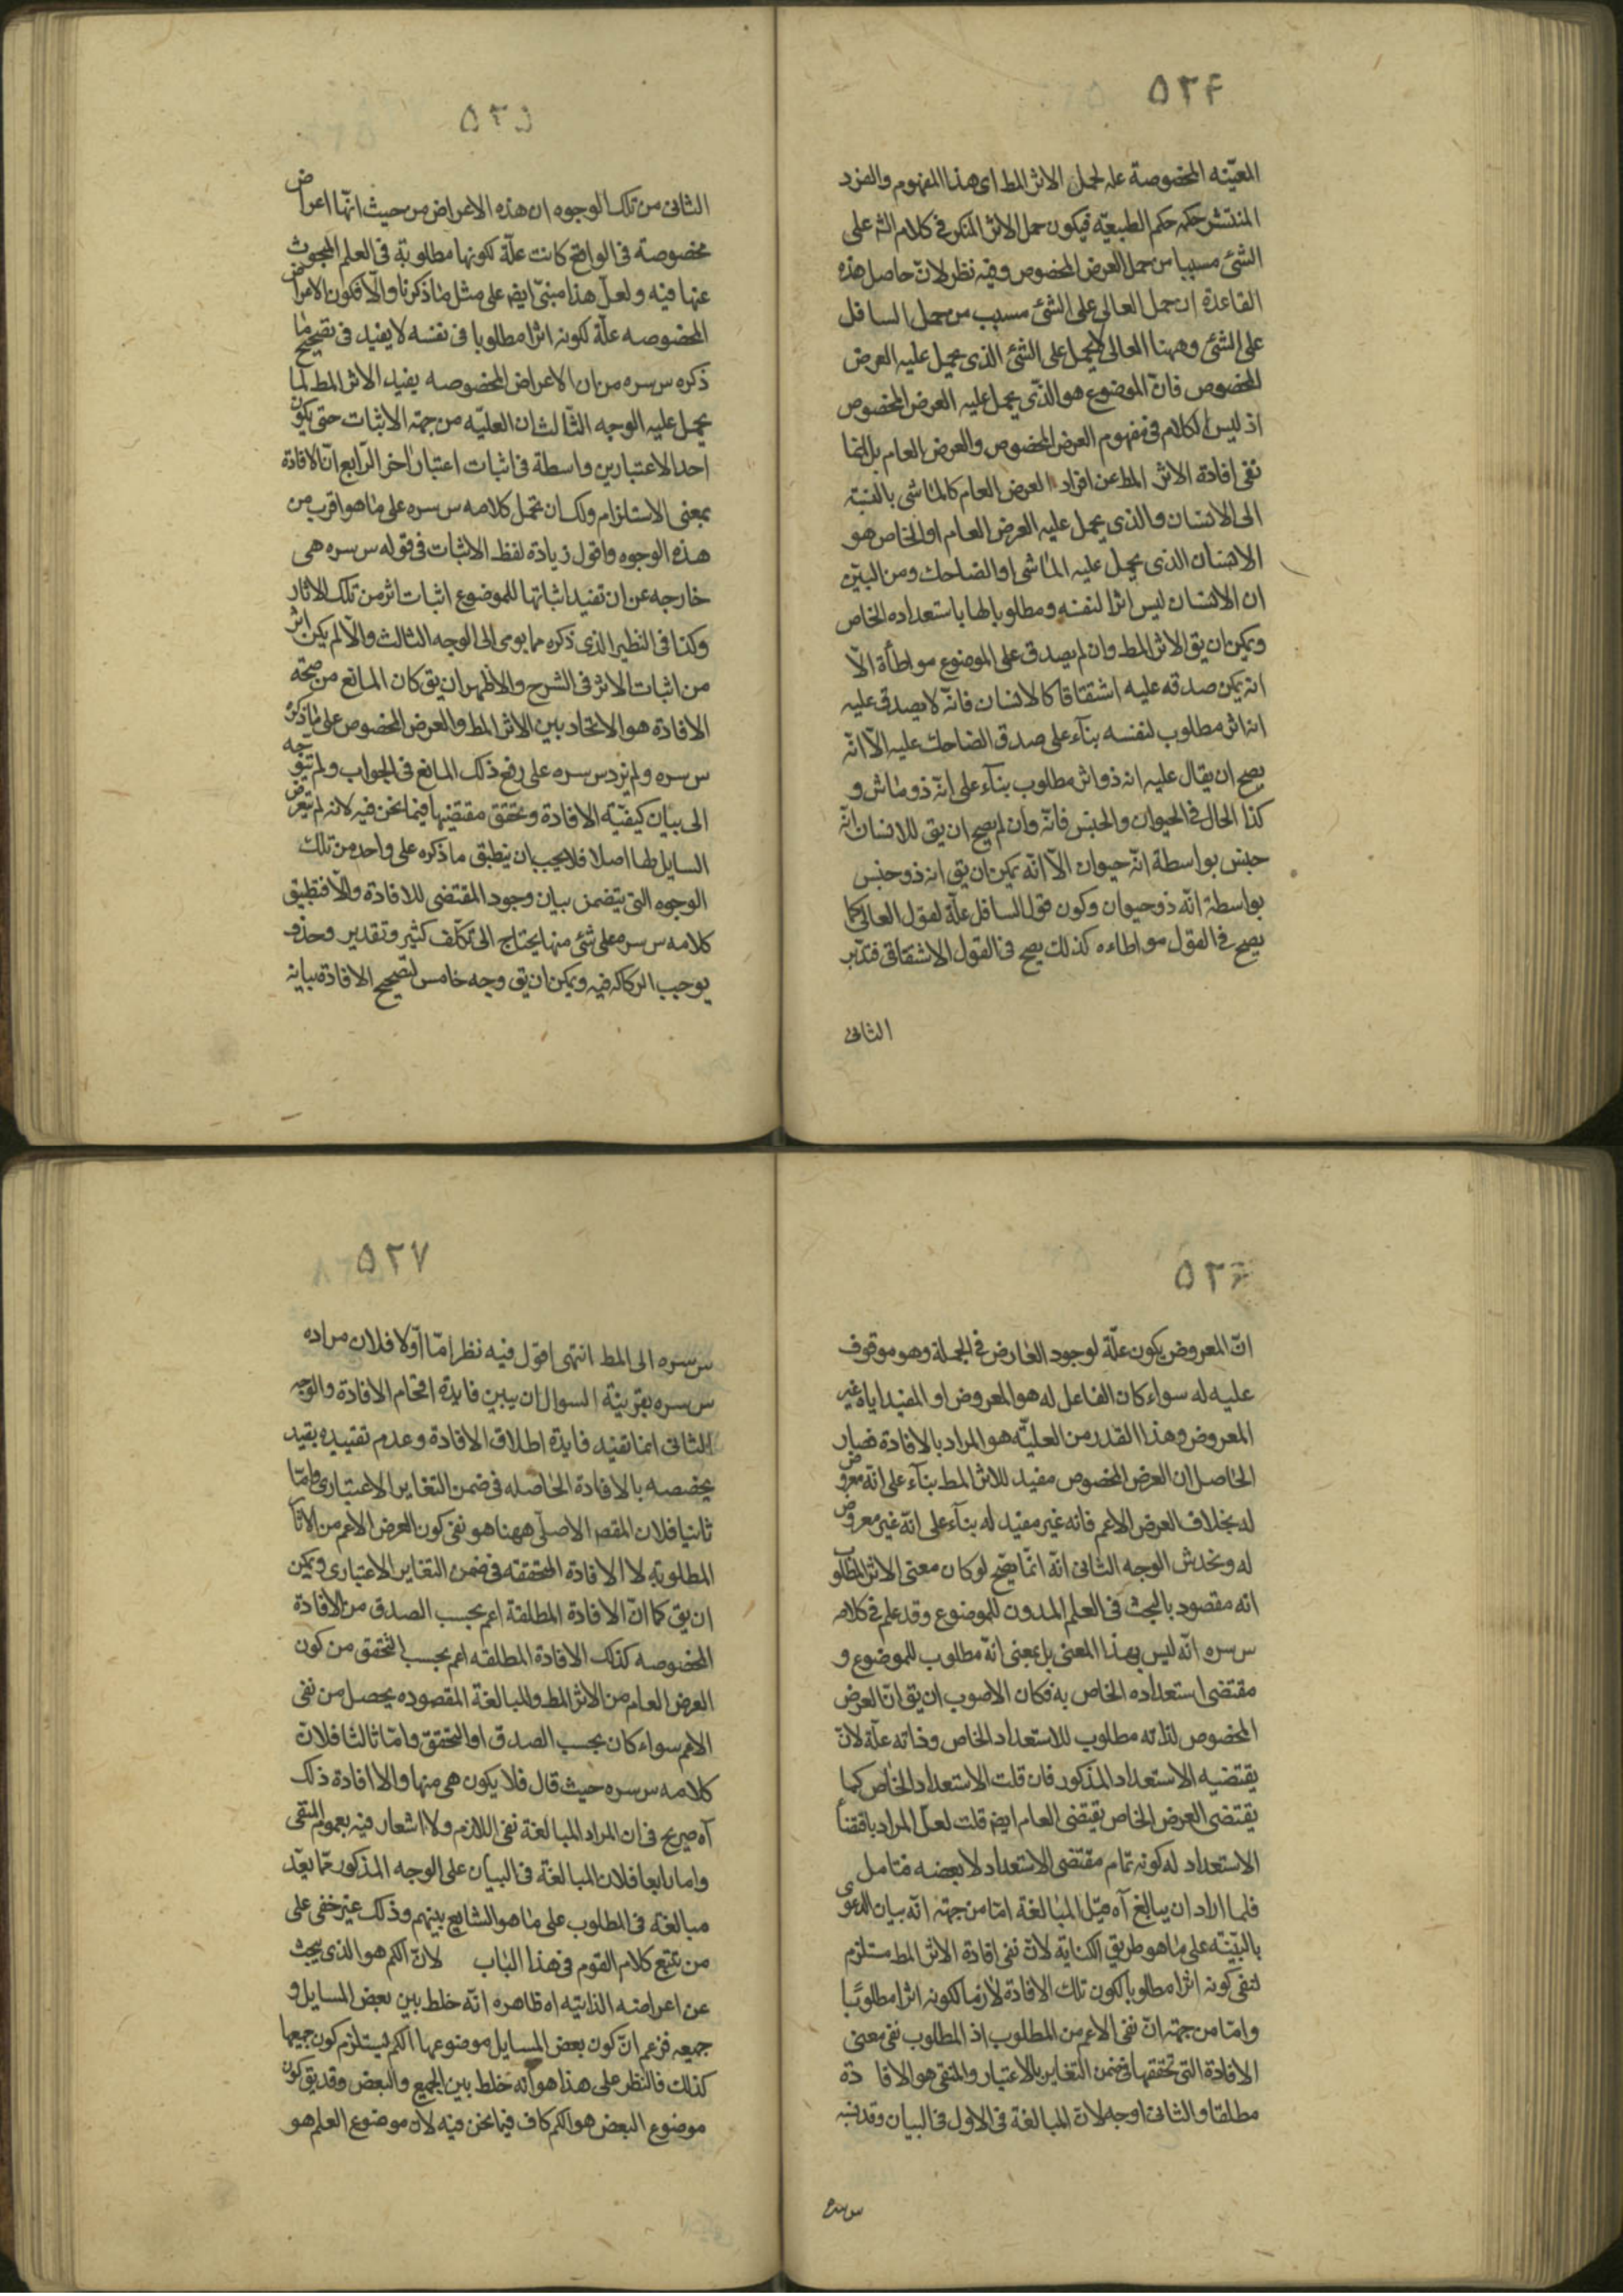 ٥٢۴
المعيّنه المخصوصة علة لحمل الاثر المط اى هذا المفهوم والفرد
المنتشر حكمه حكم الطبيعيّه فيكون حمل الاثر المنكر فى كلام الشه على
الشئ مسببا من حمل العرض المخصوص وفيه نظر لانّ حاصل هذه
القاعدة ان حمل العالى على الشئ مسبب من حمل السافل
على الشئ وههنا العالى لا يحمل على الشئ الذى يحمل عليه العرض
المخصوص فانّ الموضوع هو الذّى يحمل عليه العرض المخصوص
اذ ليس الكلام فى مفهوم العرض المخصوص والعرض العام بل انما
نفى افادة الاثر المط عن افراد العرض العام كالماشى بالنسبة
الى الانسان والذى يحمل عليه العرض العام او الخاص هو
الانسان الذى يحمل عليه الماشى او الضاحك ومن البيّن
ان الانسان ليس اثرا لنفسه ومطلوبا لها باستعداده الخاص
ويمكن ان يق الاثر المط وان لم يصدق على الموضوع مواطأة الّا
انه يمكن صدقه عليه اشتقاقا كالانسان فانّه لا يصدق عليه
انه اثر مطلوب لنفسه بنآء على صدق الضاحك عليه الّا انّه
يصح ان يقال عليه انه ذو اثر مطلوب بنآء على انّه ذو ماش و
كذا الحال فى الحيوان والجنس فانّه وان لم يصح ان يق للانسان انّه
جنس بواسطة انّه حيوان الّا انّه يمكن ان يق انه ذو جنس
بواسطة انّه ذو حيوان وكون قول السافل علّة لقول العالى كما
يصح فى القول مواطاءه كذلك يصح فى القول الاشتقاقى فتدبّر
الثانى
٥٢٥
الثانى من تلك الوجوه ان هذه الاعراض من حيث انّها اعراض
مخصوصة فى الواقع كانت علّة لكونها مطلوبة فى العلم المبحوث
عنها فيه ولعلّ هذا مبنىّ ايض على مثل ما ذكرنا والّا فكون الاعراض
المخصوصه علّة لكونه اثرا مطلوبا فى نفسه لا يفيد فى تصحيح ما
ذكره س سره من ان الاعراض المخصوصه يفيد الاثر المط لما
يحمل عليه الوجه الثّالث ان العليّه من جهة الاثبات حتى يكون
احد الاعتبارين واسطة فى اثبات اعتبار اخر الرّابع انّ الافادة
بمعنى الاستلزام ولك ان تحمل كلامه س سره على ما هو اقرب من
هذه الوجوه واقول زيادة لفظ الاثبات فى قوله س سره هى
خارجه عن ان تفيد اثباتها للموضوع اثبات اثر من تلك الاثار
وكذا فى النظير الذى ذكره مما يومى الى الوجه الثالث والّا لم يكن اثر
من اثبات الاثر فى الشرح والاظهر ان يق كان المانع من صحّة
الافادة هو الاتحاد بين الاثر المط والعرض المخصوص على ما ذكره
س سره ولم يزد س سره على رفع ذلك المانع فى الجواب ولم يتوجه
الى بيان كيفيّة الافادة وتحقق مقتضيها فيما نحن فيه لانه لم يتعرض
السايل لها اصلا فلا يجب ان ينطبق ما ذكره على واحد من تلك
الوجوه التى يتضمن بيان وجود المقتضى للافادة والّا فتطبيق
كلامه س سره على شئ منها يحتاج الى تكلّف كثير وتقدير وحذف
يوجب الركاكه فيه ويمكن ان يق وجه خامس لتصحيح الافادة بيانه
٥٢۶
انّ المعروض يكون علّة لوجود العارض فى الجملة وهو موقوف
عليه له سواء كان الفاعل له هو المعروض او المفيد اياه غير
المعروض وهذا القدر من العليّه هو المراد بالافادة فصار
الحاصل ان العرض المخصوص مفيد للاثر المط بنآء على انّه معروض
له بخلاف العرض الاعم فانه غير مفيد له بنآء على انّه غير معروض
له ونخدش الوجه الثانى انّه انّما يصّح لو كان معنى الاثر المطلوب
انه مقصود بالبحث فى العلم المدون للموضوع وقد علم فى كلامه
س سره انّه ليس بهذا المعنى بل بمعنى انّه مطلوب للموضوع و
مقتضى استعداده الخاص به فكان الاصوب ان يق انّ العرض
المخصوص لذاته مطلوب للاستعداد الخاص وذاته علّة لانّ
يقتضيه الاستعداد المذكور فان قلت الاستعداد الخاص كما
يقتضى العرض الخاص يقتضى العام ايض قلت لعلّ المراد باقتضا
الاستعداد له كونه تمام مقتضى الاستعداد لا بعضه فتامل
فلما اراد ان يبالغ آه قيل المبالغة امّا من جهة انّه بيان الدعوى
بالبيّنه على ما هو طريق الكنايه لانّ نفى افادة الاثر المط مستلزم
لنفى كونه اثرا مطلوبا لكون تلك الافادة لازما لكونه اثرا مطلوبًا
وامّا من جهة انّ نفى الاعم من المطلوب اذ المطلوب نفى معنى
الافادة التى تحققها فى ضمن التغاير بالاعتبار والمنفى هو الافادة
مطلقا والثانى اوجه لانّ المبالغة فى الاول فى البيان وقد نبه
س سره
٥٢٧
س سره الى المط انتهى اقول فيه نظر امّا اوّلا فلان مراده
س سره بقرينة السوال ان يبين فايدة اقحام الافادة والوجه
الثانى انما تفيد فايدة اطلاق الافادة وعدم تقييده بقيد
يخصصه بالافادة الحاصله فى ضمن التغاير الاعتبارى وامّا
ثانيا فلان المقصر الاصلّى ههنا هو نفى كون العرض الاعم من الاثآ
المطلوبة لا الافادة المتحققه فى ضمن التغاير الاعتبارى ويمكن
ان يق كما انّ الافادة المطلقة اعم بحسب الصدق من الافادة
المخصوصه كذلك الافادة المطلقه اعم بحسب التحقق من كون
العرض العام من الاثر المط والمبالغة المقصوده يحصل من نفى
الاعم سواء كان بحسب الصدق او التحقق وامّا ثالثا فلانّ
كلامه س سره حيث قال فلا يكون هى منها والا افادة ذلك
آه صريح فى ان المراد المبالغة نفى اللازم ولا اشعار فيه بعموم المنفى
واما رابعا فلان المبالغة فى البيان على الوجه المذكور ممّا يعدّ
مبالغة فى المطلوب على ما هو الشايع بينهم وذلك غير خفى على
من تتبع كلام القوم فى هذا الباب لانّ الكم هو الذى يبحث
عن اعراضه الذاتيه اه ظاهره انّه خلط بين بعض المسايل و
جميعه فزعم انّ كون بعض المسايل موضوعها الكم يستلزم كون جميعها
كذلك فالنظر على هذا هو انّه خلط بين الجميع والبعض وقد يق كون
موضوع البعض هو الكم كاف فيما نحن فيه لان موضوع العلم هو